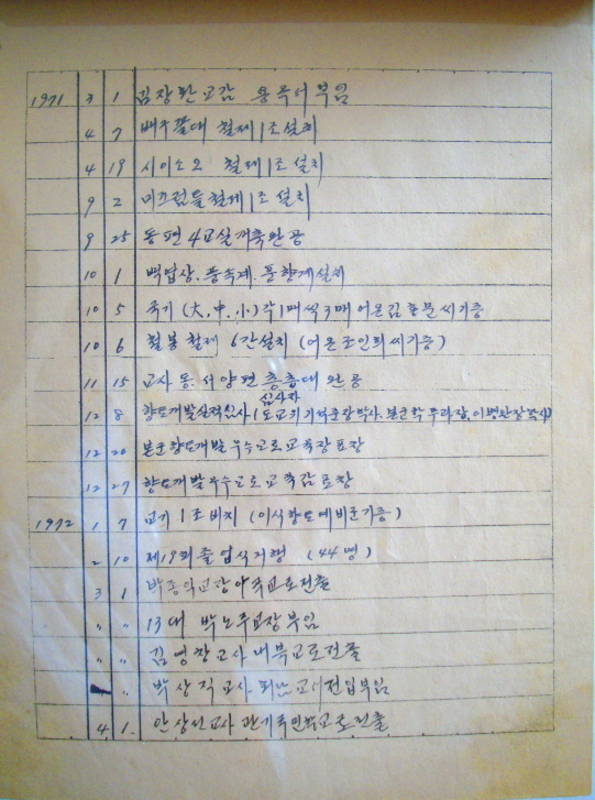 1971 3 1 김장환교감 용국서부임
4 7 배구폴대 철제1조설치
4 19 시이소오 철제1조설치
9 2 미끄럼틀철제1조설치
9 25 동편4교실개축완공
10 1 백엽상.풍속계.풍향계설치
10 5 국기(大.中.小)각1매씩3매어온김 문씨기증
10 6 철봉철제6간설치(어온조인희씨기증)
11 15 교사동.서양편층층대완공
심사자
12 8 향토개발실적심사(도교위 장학사.본군학무과장,
12 20 본군향토개발우수교로교육장표장
12 27 향토개발우수교로교육감표장
1972 1 7 교기1조비치(이식향토예비군기증)
2 10 제19회졸업식거행(44명)
3 1 교장 국교로전출
〃 〃 13대 박노주교장부임
〃 〃 김영창교사내북교로전출
〃 박상직교사 교서전입부임
4 1. 안상선교사관기국민학교로전출